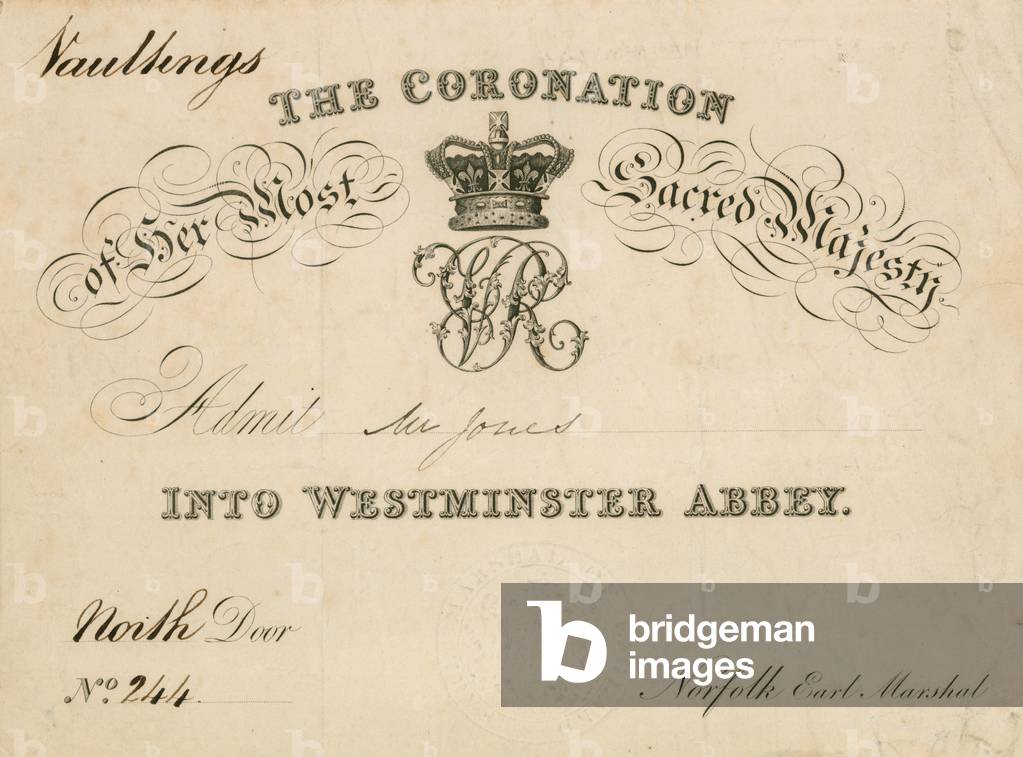 Vaultings
THE CORONATION
of Her Most Sacred Majesty
VR
Admit Mr Jones
INTO WESTMINSTER ABBEY.
North Door
No. 244
Norfolk Earl Marshal
bridgeman
images